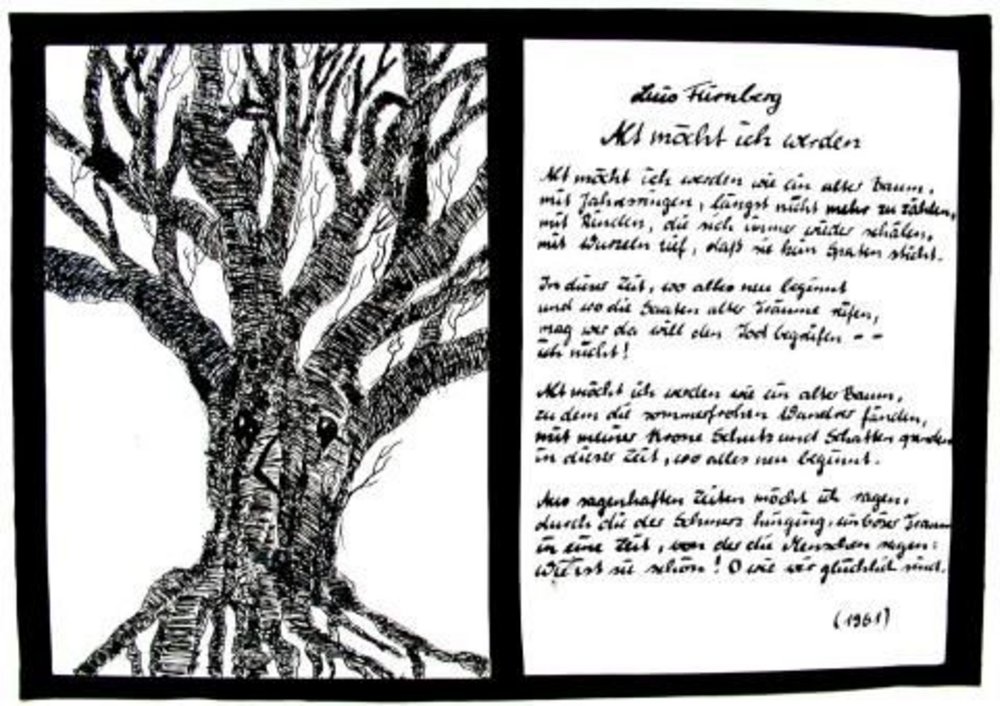 Luis Fürnberg
Alt möcht ich werden
Alt möcht ich werden wie ein alter Baum,
mit Jahresringen, längst nicht mehr zu zählen,
mit Rinden, die sich immer wieder schälen,
mit Wurzeln tief, daß sie kein Spaten sticht.
In dieser Zeit, wo alles neu beginnt
und wo die Saaten alter Träume reifen,
mag wer da will den Tod begreifen - -
ich nicht!
Alt möcht ich werden wie ein alter Baum,
zu dem die sommerfrohen Wandrer fänden,
mit meiner Krone Schutz und Schatten spenden
in dieser Zeit, wo alles neu beginnt.
Aus sagenhaften Zeiten möcht ich ragen,
durch die der Schmerz hinging, ein böser Traum
in eine Zeit, von der die Menschen sagen:
Wie ist sie schön! O wie wir glücklich sind.
(1961)